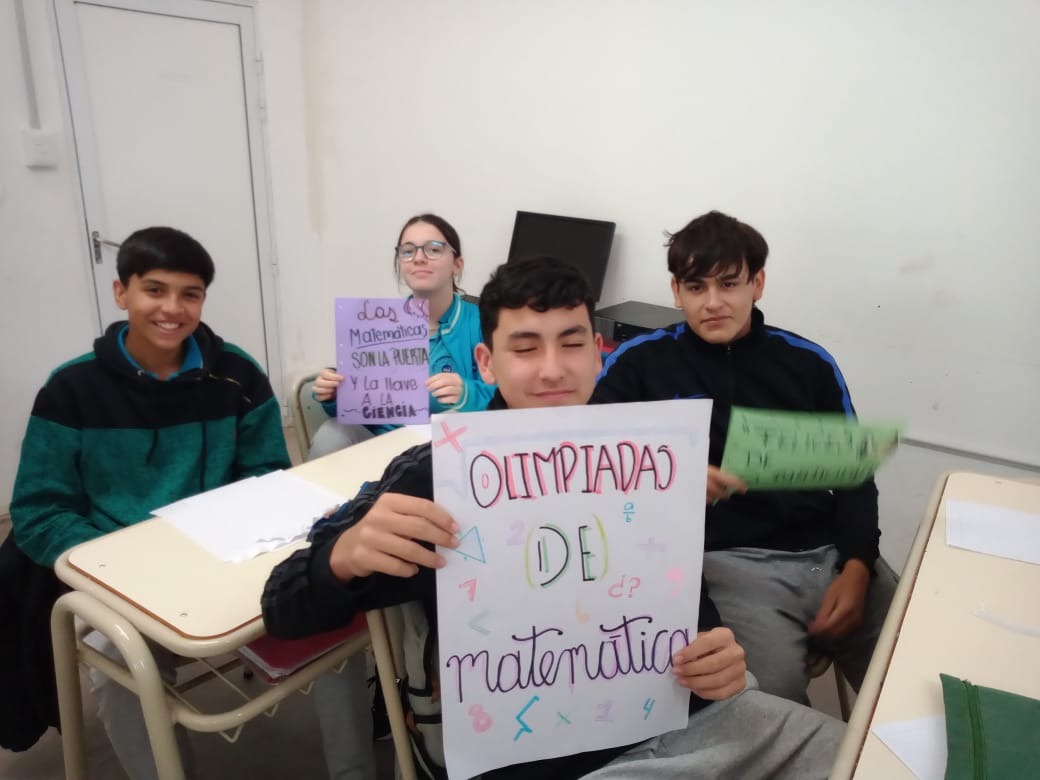 Las
Matemáticas
SON LA PUERTA
Y La llave
A LA
CIENCIA
OLIMPIADAS
DE
matemática
a/b
2
÷
7
¿?
9
<
6
8
{
x
1
4
DE